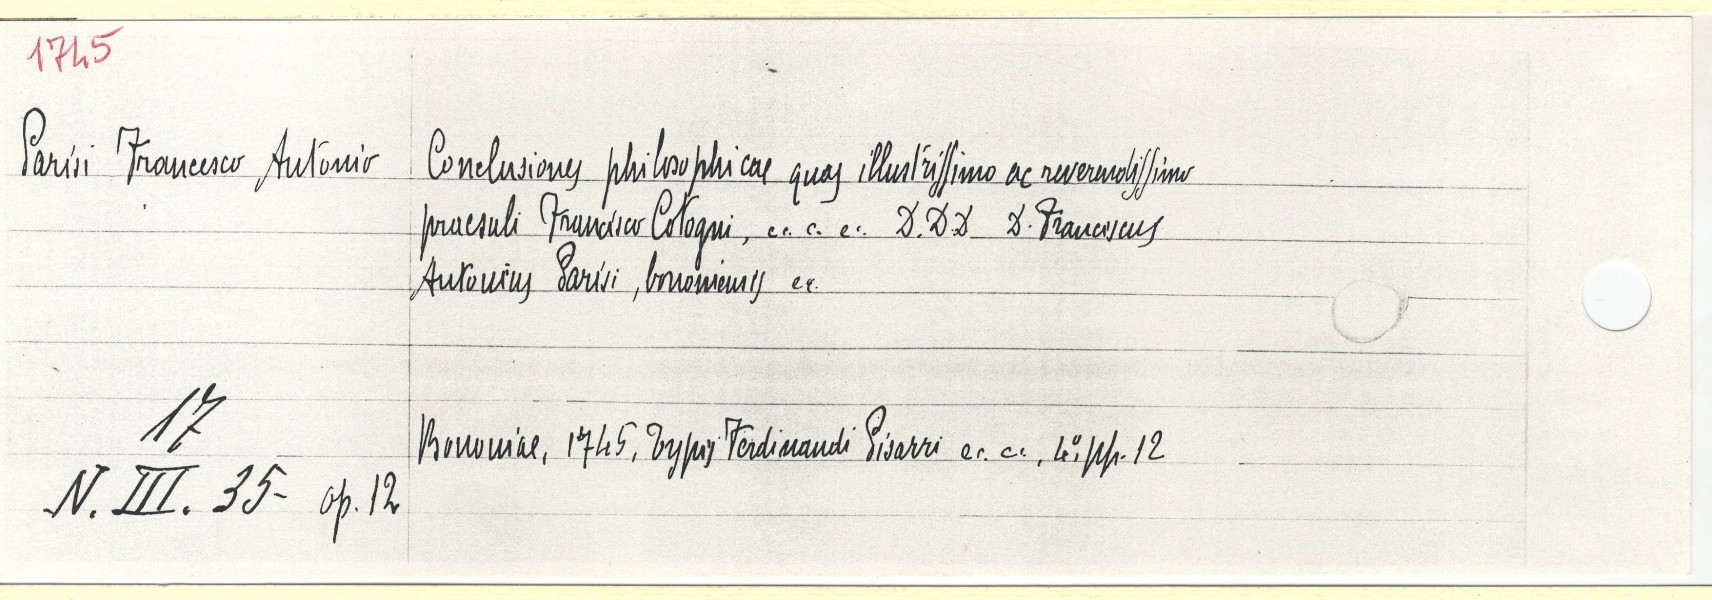 1745
Parisi Francesco Antonio
Conclusiones philosophicae quas illustrissimo ac reverendissimo
praesuli Francisco Cotogni, ec. c. ec. D.D.D D. Franciscus
Antonius Parisi, bononiensis ec.
17
N. III. 35- op. 12
Bononiae, 1745, typis Ferdinandi Pisarri ec. ec., 4°, pp. 12